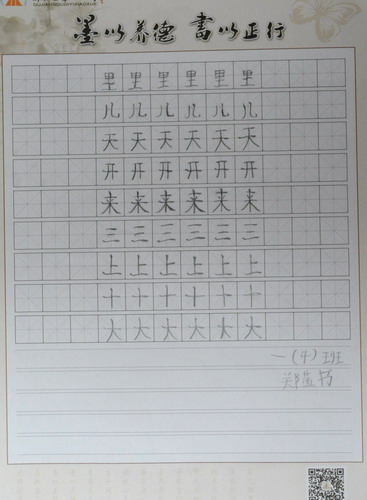 墨以养德 书以正行
里里里里里里
儿儿儿儿儿儿
天天天天天天
开开开开开开
来来来来来来
三三三三三三
上上上上上上
十十十十十十
大大大大大大
一(4)班